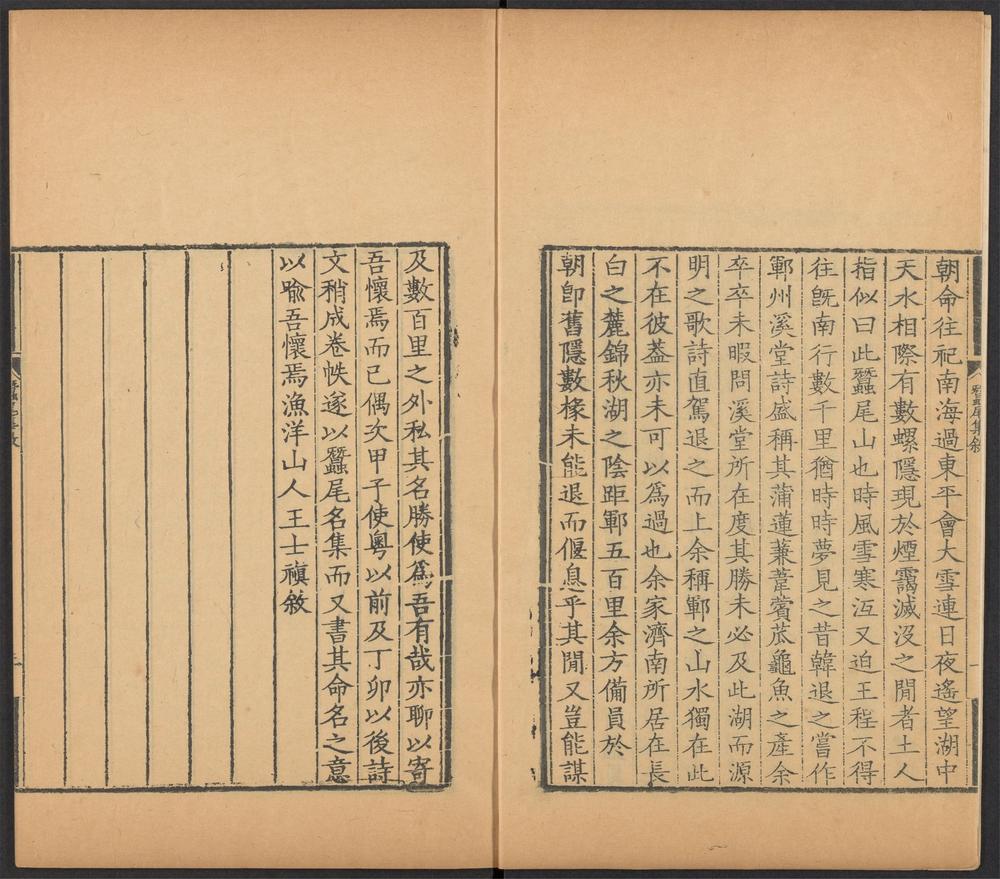 朝命往祀南海過東平會大雪連日夜遙望湖中
天水相際有數螺隱現於煙靄滅沒之閒者土人
指似曰此蠶尾山也時風雪寒冱又迫王程不得
往旣南行數千里猶時時夢見之昔韓退之嘗作
鄆州溪堂詩盛稱其蒲蓮蒹葦薲蓏龜魚之產余
卒卒未暇問溪堂所在度其勝未必及此湖而源
明之歌詩直駕退之而上余稱鄆之山水獨在此
不在彼葢亦未可以爲過也余家濟南所居在長
白之麓錦秋湖之陰距鄆五百里余方備員於
朝卽舊隱數椽未能退而偃息乎其閒又豈能謀
蠶尾集敘
一
及數百里之外私其名勝使爲吾有哉亦聊以寄
吾懷焉而已偶次甲子使粵以前及丁卯以後詩
文稍成卷帙遂以蠶尾名集而又書其命名之意
以喻吾懷焉漁洋山人王士禛敘